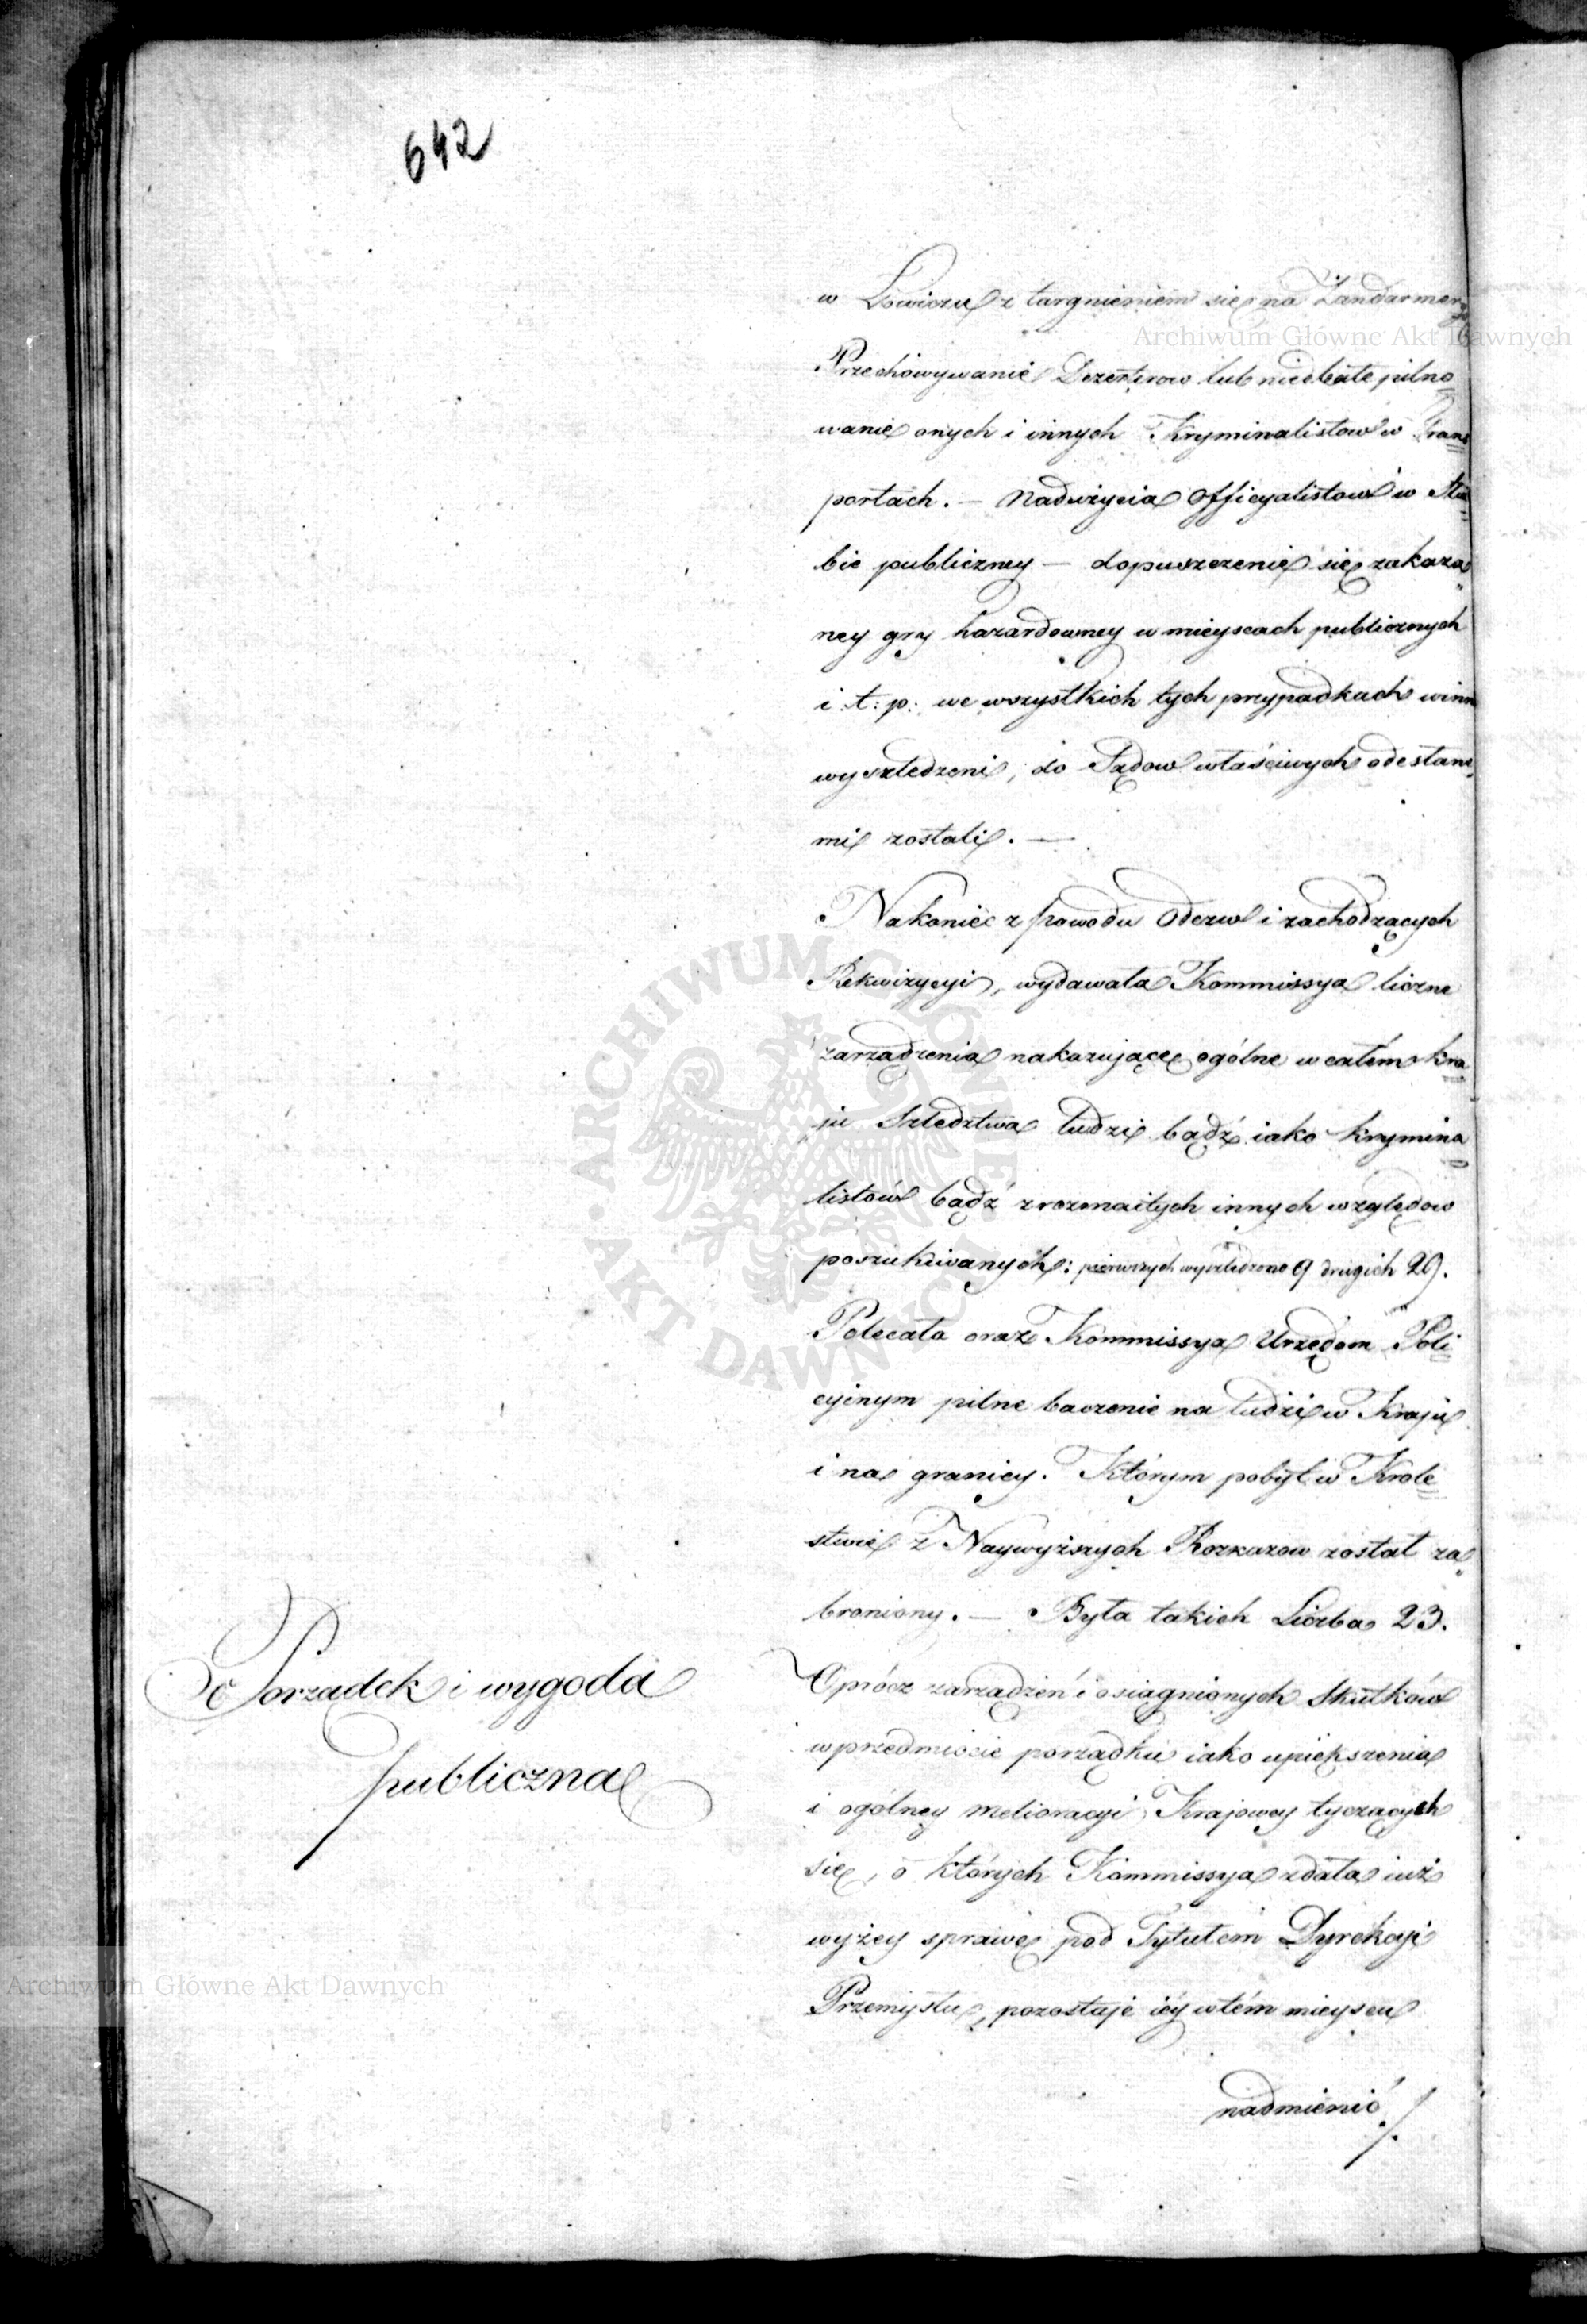 642
w Łowiczu z targnieniem się na Żandarmery
Przechowywanie Dezerterow lub niedbałe pilno=
wanie onych i innych Kryminalistow w Trans=
portach. — Nadużycia Officyalistow w Słu=
bie publiczney — dopuszczenie się zakaza=
ney gry hazardowney w mieyscach publicznych
i: t: p: we wszystkich tych przypadkach winni
wyszledzeni, do Sądow właściwych odesłane=
mi zostali. —
Nakoniec z powodu Odezw i zachodzących
Rekwizycyi, wydawała Kommissya liczne
zarządzenia nakazujące ogólne w całém kra=
ju szledztwa ludzi bądź iako krymina=
listów bądź z rozmaitych innych względow
poszukiwanych: pierwszych wyszledzono 9 drugich 29.
Polecała oraz Kommissya Urzędom Poli=
cyinym pilne baczenie na ludzi w Kraju
i na granicy. Którym pobyt w Krole=
stwie z Naywyższych Rozkazow został za=
broniony. — Była takich Liczba 23.
c Porządek i wygoda
publiczna
Oprócz zarządzeń i osiągnionych skutków
w przedmiocie porządku iako upiększenia
i ogólney melioracyi Krajowey tyczących
się, o których Kommissya zdała iuż
wyżey sprawę pod Tytułem Dyrekcyi
Przemysłu, pozostaje iéy w tém mieyscu
nadmienić /.
Archiwum Główne Akt Dawnych
Archiwum Główne Akt Dawnych
ARCHIWUM GŁÓWNE AKT DAWNYCH